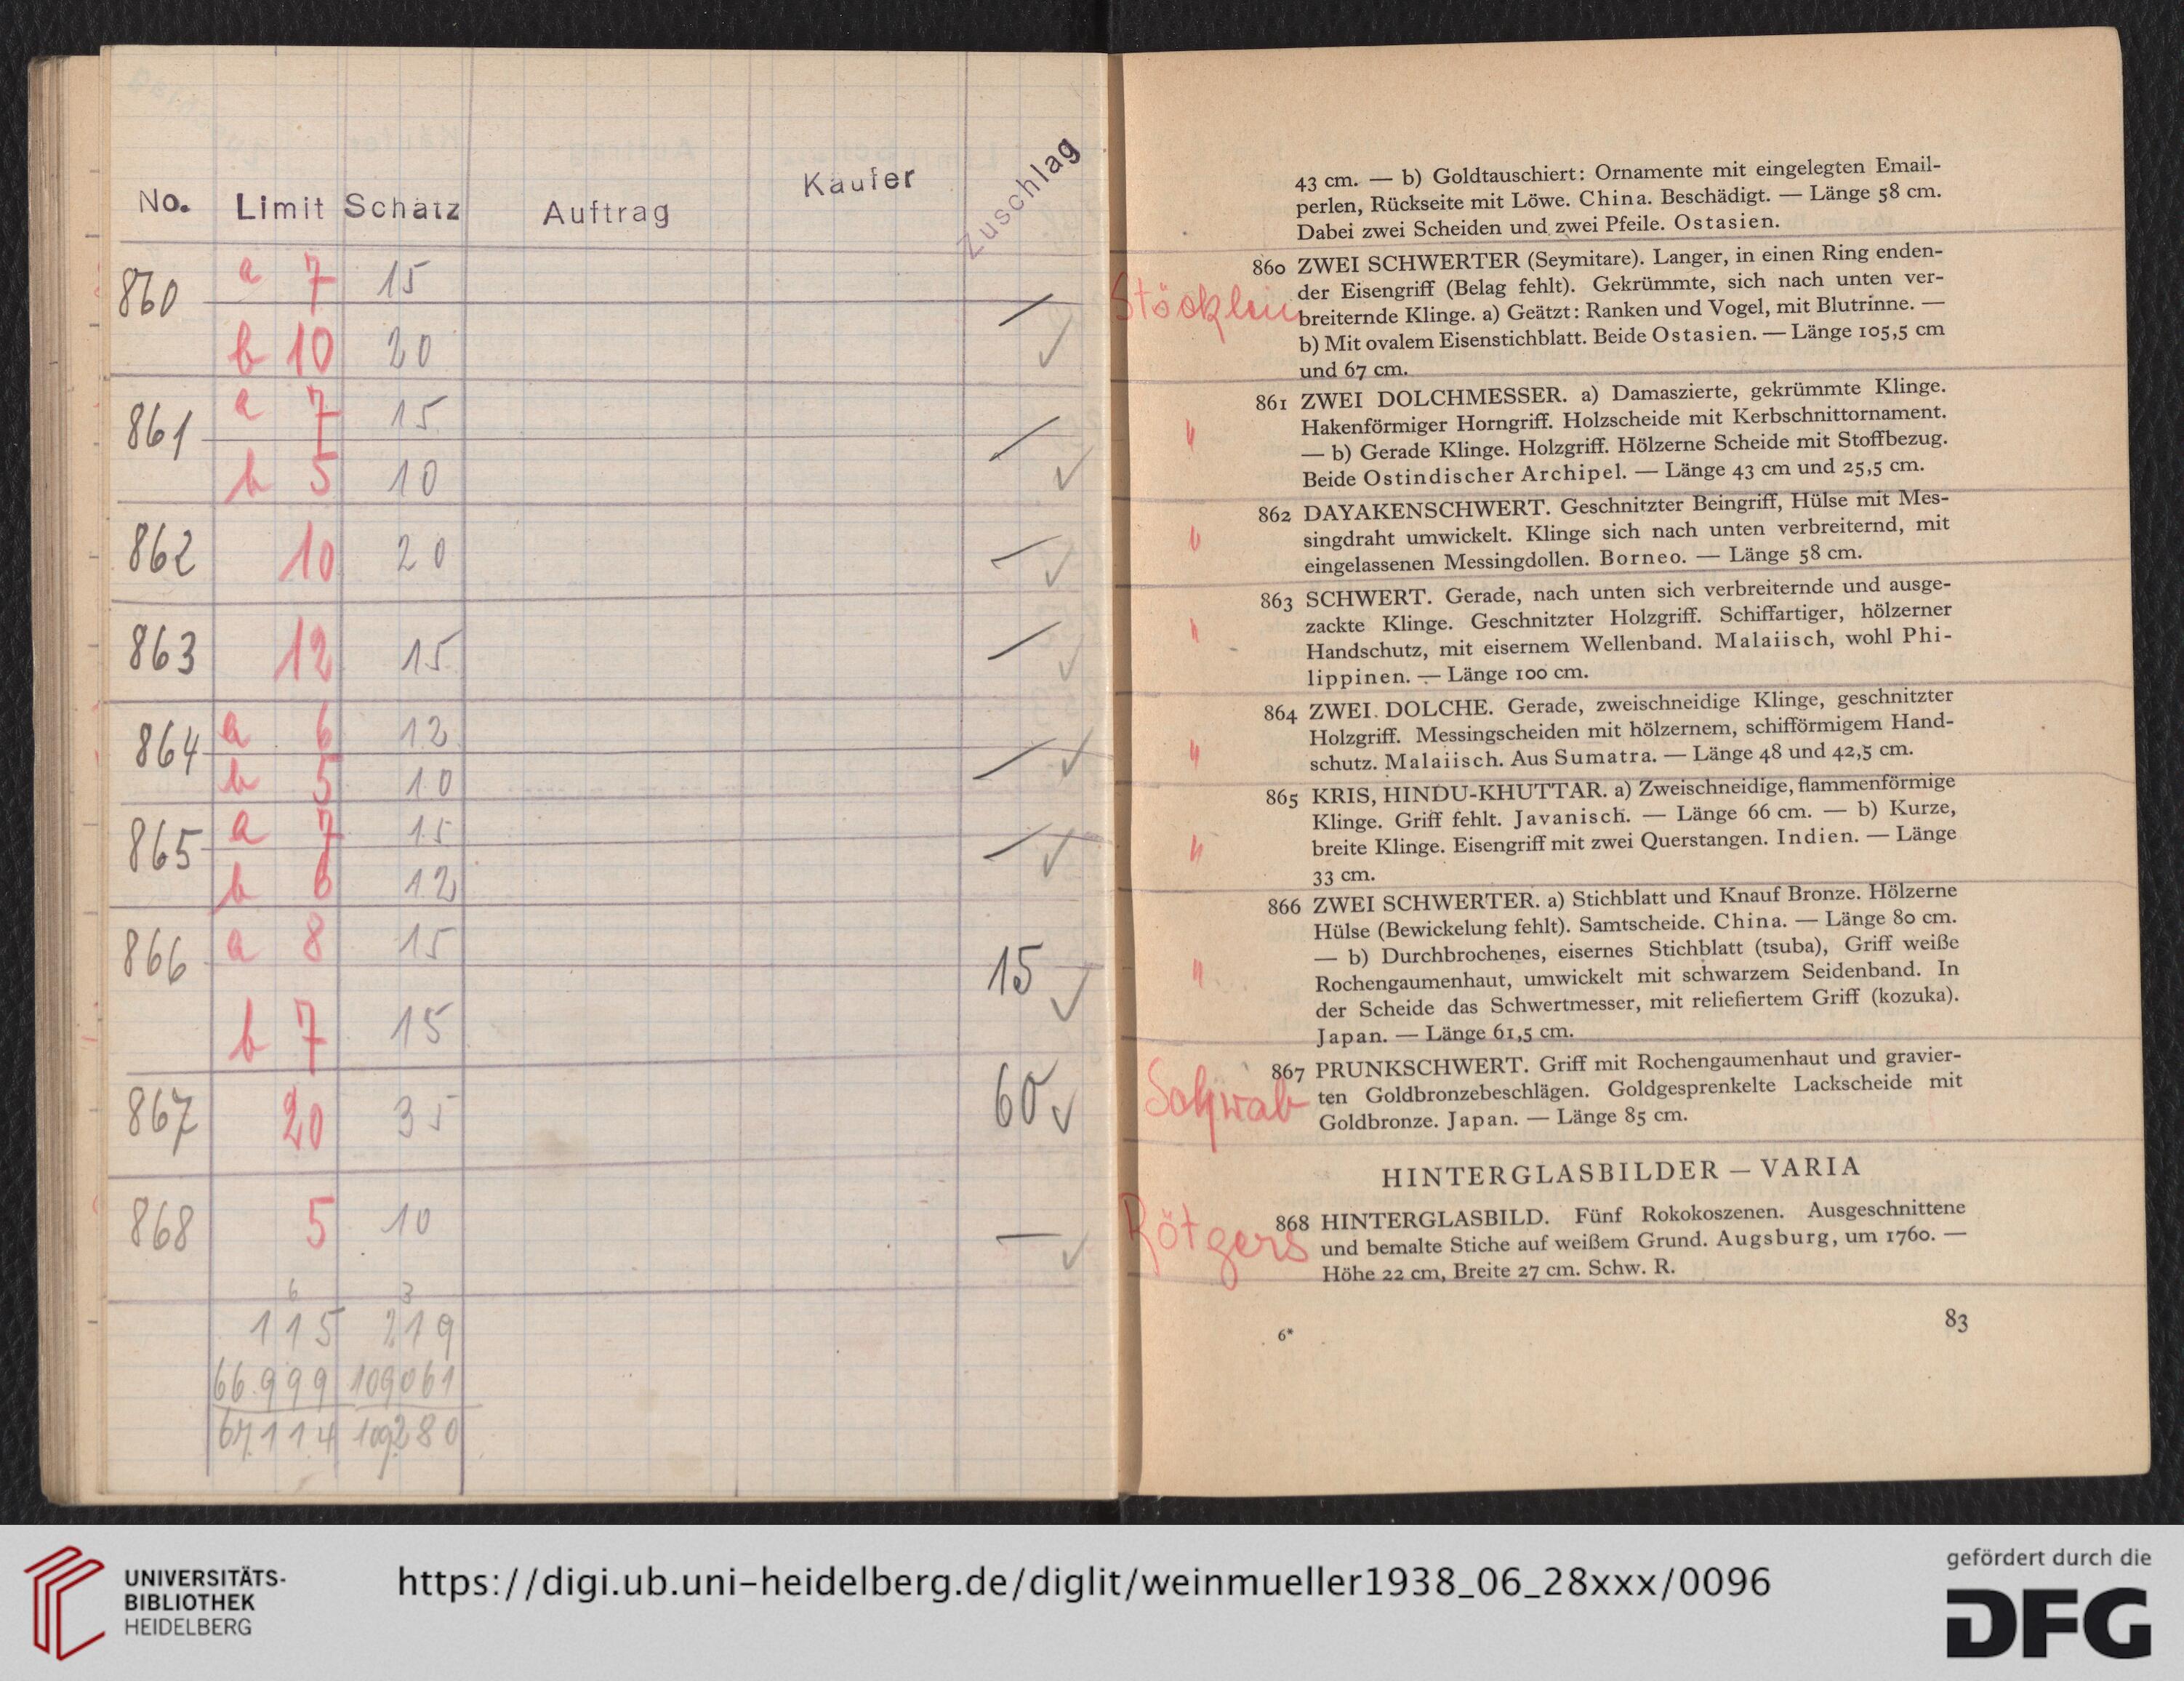 No. Limit Schätz Auftrag Käufer Zuschlag
860 a 7 15 —
b 10 20 ✓
861 a 7 15 —
b 5 10 ✓
862 10 20 — ✓
863 12 15 — ✓
864 a 6 12 — ✓
b 5 10
865 a 7 15 — ✓
b 6 12
866 a 8 15 15 ✓
b 7 15
867 20 35 60 ✓
868 5 10 — ✓
6 3
115 219
66.999 109061
67.114 109280
43 cm. — b) Goldtauschiert: Ornamente mit eingelegten Email-
perlen, Rückseite mit Löwe. China. Beschädigt. — Länge 58 cm.
Dabei zwei Scheiden und zwei Pfeile. Ostasien.
860 ZWEI SCHWERTER (Seymitare). Langer, in einen Ring enden-
der Eisengriff (Belag fehlt). Gekrümmte, sich nach unten ver-
Stöcklein breiternde Klinge. a) Geätzt: Ranken und Vogel, mit Blutrinne. —
b) Mit ovalem Eisenstichblatt. Beide Ostasien. — Länge 105,5 cm
und 67 cm.
861 ZWEI DOLCHMESSER. a) Damaszierte, gekrümmte Klinge.
" Hakenförmiger Horngriff. Holzscheide mit Kerbschnittornament.
— b) Gerade Klinge. Holzgriff. Hölzerne Scheide mit Stoffbezug.
Beide Ostindischer Archipel. — Länge 43 cm und 25,5 cm.
862 DAYAKENSCHWERT. Geschnitzter Beingriff, Hülse mit Mes-
" singdraht umwickelt. Klinge sich nach unten verbreiternd, mit
eingelassenen Messingdollen. Borneo. — Länge 58 cm.
863 SCHWERT. Gerade, nach unten sich verbreiternde und ausge-
" zackte Klinge. Geschnitzter Holzgriff. Schiffartiger, hölzerner
Handschutz, mit eisernem Wellenband. Malaiisch, wohl Phi-
lippinen. — Länge 100 cm.
864 ZWEI DOLCHE. Gerade, zweischneidige Klinge, geschnitzter
" Holzgriff. Messingscheiden mit hölzernem, schifförmigem Hand-
schutz. Malaiisch. Aus Sumatra. — Länge 48 und 42,5 cm.
865 KRIS, HINDU-KHUTTAR. a) Zweischneidige, flammenförmige
Klinge. Griff fehlt. Javanisch. — Länge 66 cm. — b) Kurze,
" breite Klinge. Eisengriff mit zwei Querstangen. Indien. — Länge
33 cm.
866 ZWEI SCHWERTER. a) Stichblatt und Knauf Bronze. Hölzerne
Hülse (Bewickelung fehlt). Samtscheide. China. — Länge 80 cm.
— b) Durchbrochenes, eisernes Stichblatt (tsuba), Griff weiße
" Rochengaumenhaut, umwickelt mit schwarzem Seidenband. In
der Scheide das Schwertmesser, mit reliefiertem Griff (kozuka).
Japan. — Länge 61,5 cm.
867 PRUNKSCHWERT. Griff mit Rochengaumenhaut und gravier-
Schwab ten Goldbronzebeschlägen. Goldgesprenkelte Lackscheide mit
Goldbronze. Japan. — Länge 85 cm.
HINTERGLASBILDER — VARIA
868 HINTERGLASBILD. Fünf Rokokoszenen. Ausgeschnittene
Rötgers und bemalte Stiche auf weißem Grund. Augsburg, um 1760. —
Höhe 22 cm, Breite 27 cm. Schw. R.
6*
83
UNIVERSITÄTS-
BIBLIOTHEK
HEIDELBERG
https://digi.ub.uni-heidelberg.de/diglit/weinmueller1938_06_28xxx/0096
gefördert durch die
DFG